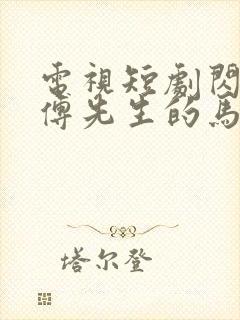 電視短劇閃
傅先生的馬
塔尔登